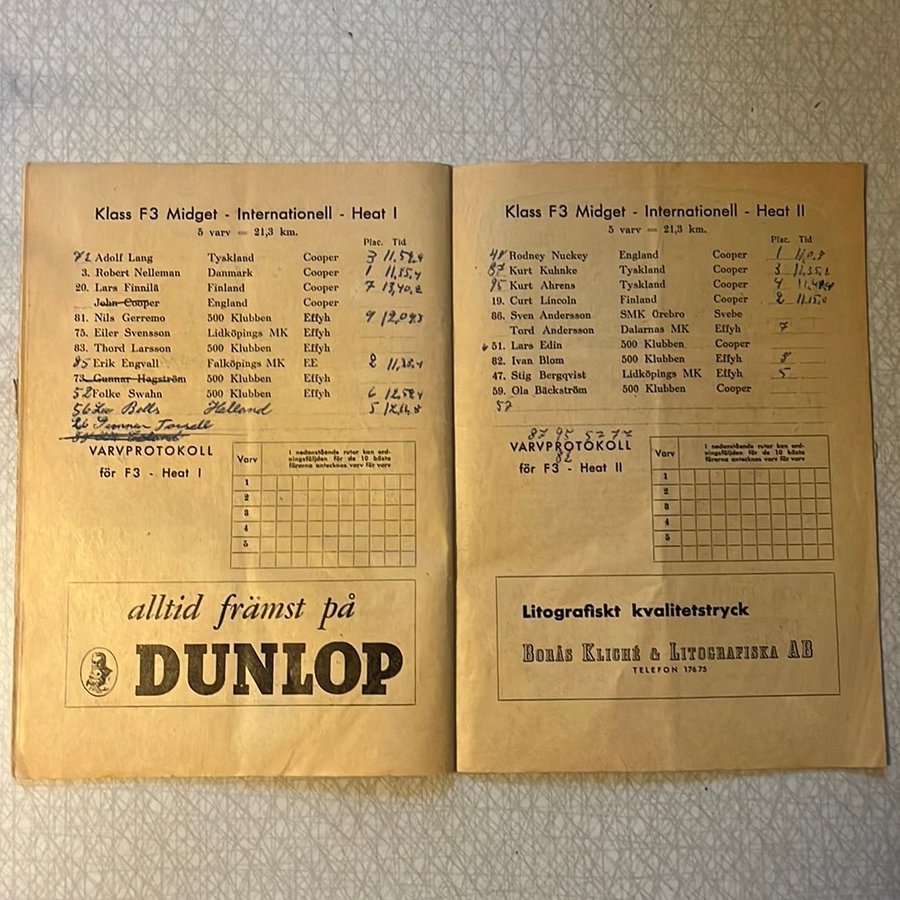 Klass F3 Midget - Internationell - Heat I
5 varv = 21,3 km.
Plac. Tid
Adolf Lang Tyskland Cooper 3
3. Robert Nelleman Danmark Cooper 1 11,35,4
20. Lars Finnilä Finland Cooper 7 13,40,2
John Cooper England Cooper
81. Nils Gerremo 500 Klubben Effyh
75. Eiler Svensson Lidköpings MK Effyh
83. Thord Larsson 500 Klubben Effyh
85 Erik Engvall Falköpings MK EE 2
73. Gunnar Hagström 500 Klubben Effyh
52 Folke Swahn 500 Klubben Effyh 6 12,52,4
56 Holland 5
Gunnar
VARVPROTOKOLL
för F3 - Heat I
Varv I nedanstående rutor kan ord-
ningsföljden för de 10 bästa
förarna antecknas varv för varv
1
2
3
4
5
alltid främst på
DUNLOP
Klass F3 Midget - Internationell - Heat II
5 varv = 21,3 km.
Plac. Tid
48 Rodney Nuckey England Cooper 1
87 Kurt Kuhnke Tyskland Cooper 3
95 Kurt Ahrens Tyskland Cooper 4
19. Curt Lincoln Finland Cooper 2
86. Sven Andersson SMK Örebro Svebe
Tord Andersson Dalarnas MK Effyh 7
51. Lars Edin 500 Klubben Cooper
82. Ivan Blom 500 Klubben Effyh
47. Stig Bergqvist Lidköpings MK Effyh 5
59. Ola Bäckström 500 Klubben Cooper
57
87 95 57 77
82
VARVPROTOKOLL
för F3 - Heat II
Varv I nedanstående rutor kan ord-
ningsföljden för de 10 bästa
förarna antecknas varv för varv
1
2
3
4
5
Litografiskt kvalitetstryck
BORÅS KLICHÉ & LITOGRAFISKA AB
TELEFON 17673